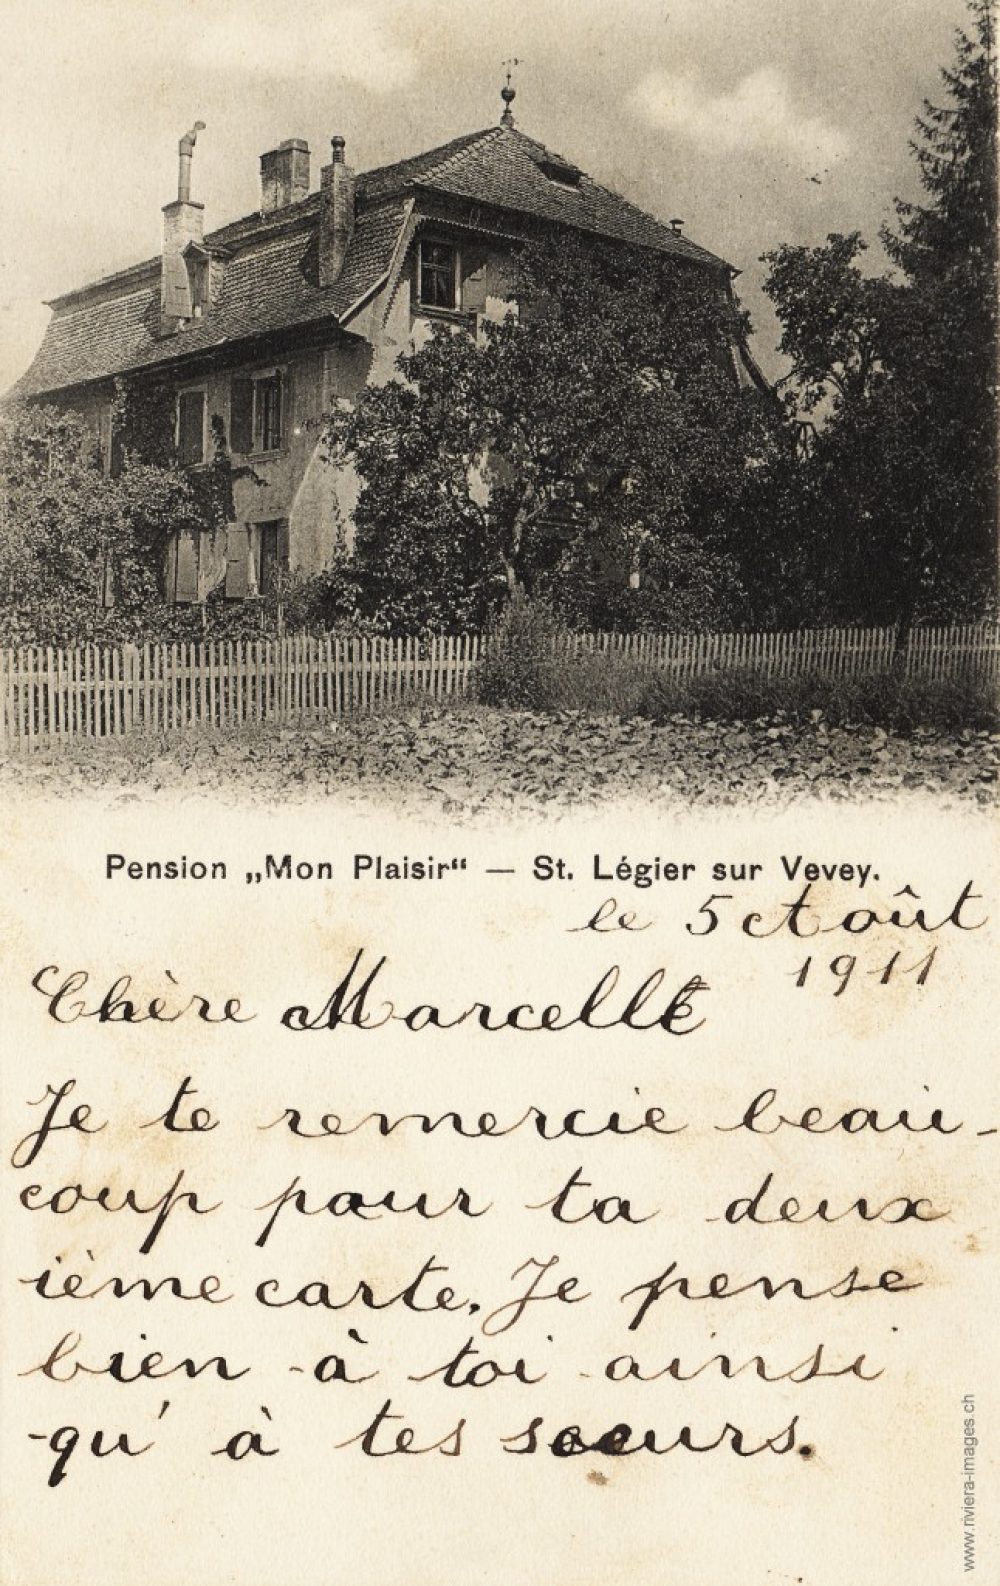 Pension „Mon Plaisir“ — St. Légier sur Vevey.
le 5 Août
1911
Chère Marcelle
Je te remercie beau-
coup pour ta deux
ième carte. Je pense
bien à toi ainsi
qu'à tes soeurs.
www.riviera-images.ch